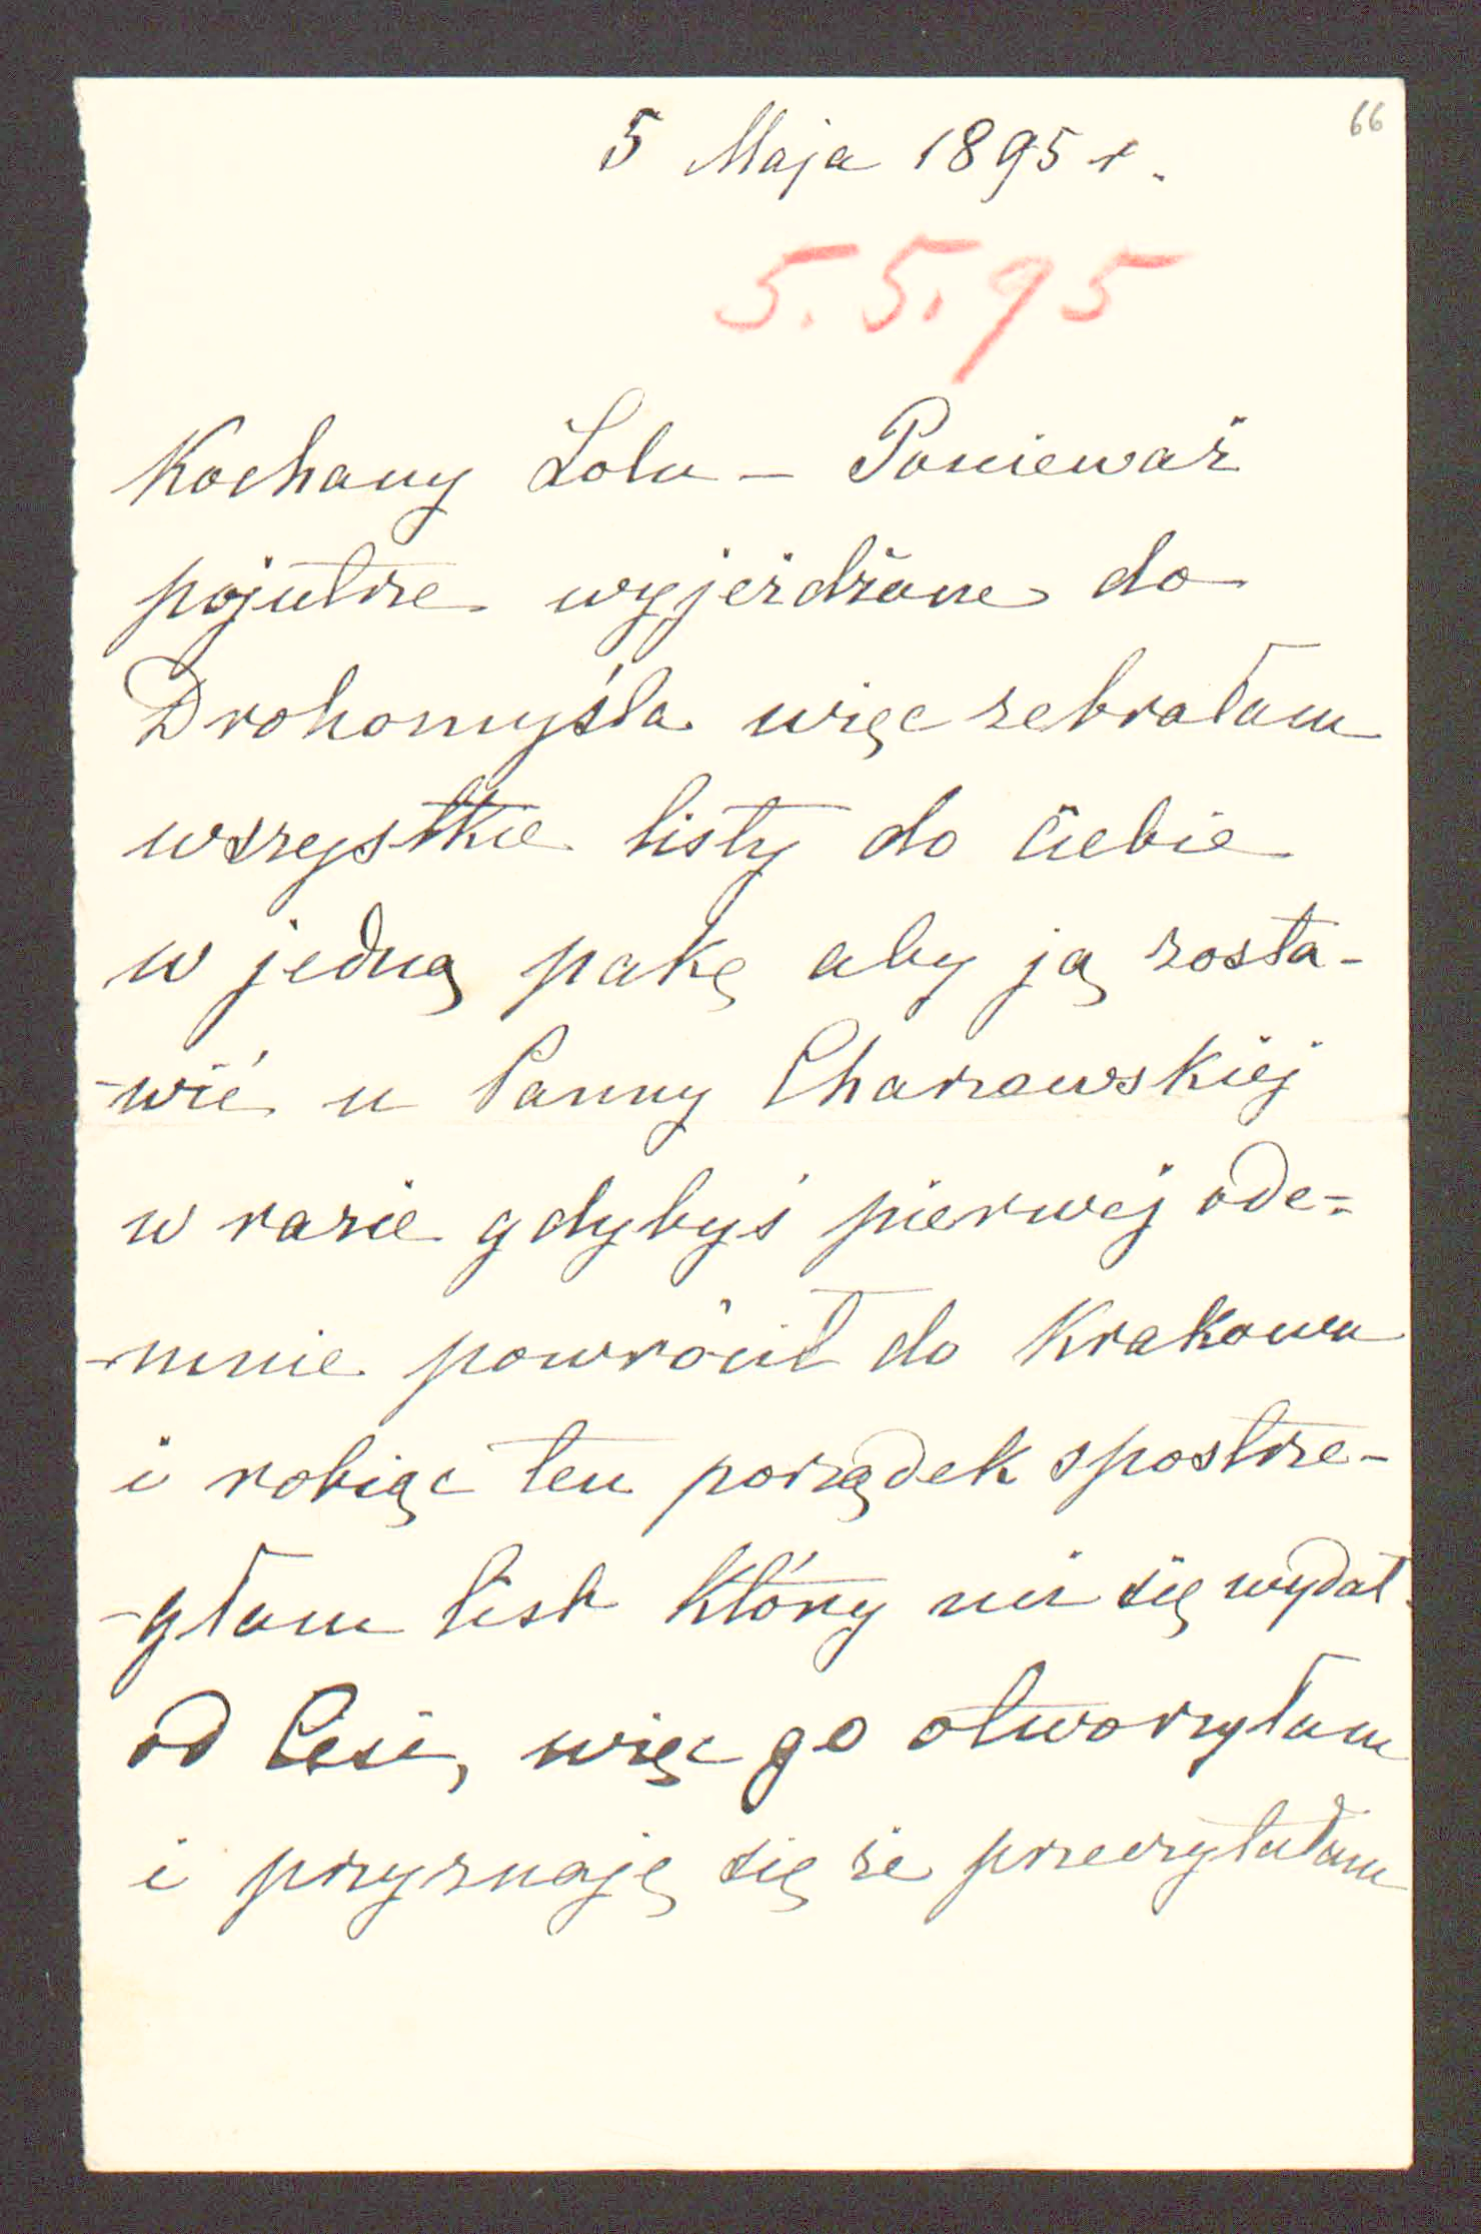 66
5 Maja 1895 r.
5.5.95
Kochany Lolu – Ponieważ
pojutrze wyjeżdżam do
Drohomyśla więc zebrałam
wszystkie listy do ciebie
w jedną pakę aby ją zosta-
-wić u Panny Charzewskiej
w razie gdybyś pierwej ode-
-mnie powrócił do Krakowa
i robiąc ten porządek spostrze-
-głam list który mi się wydał
od Cesi, więc go otworzyłam
i przyznaję się że przeczytałam